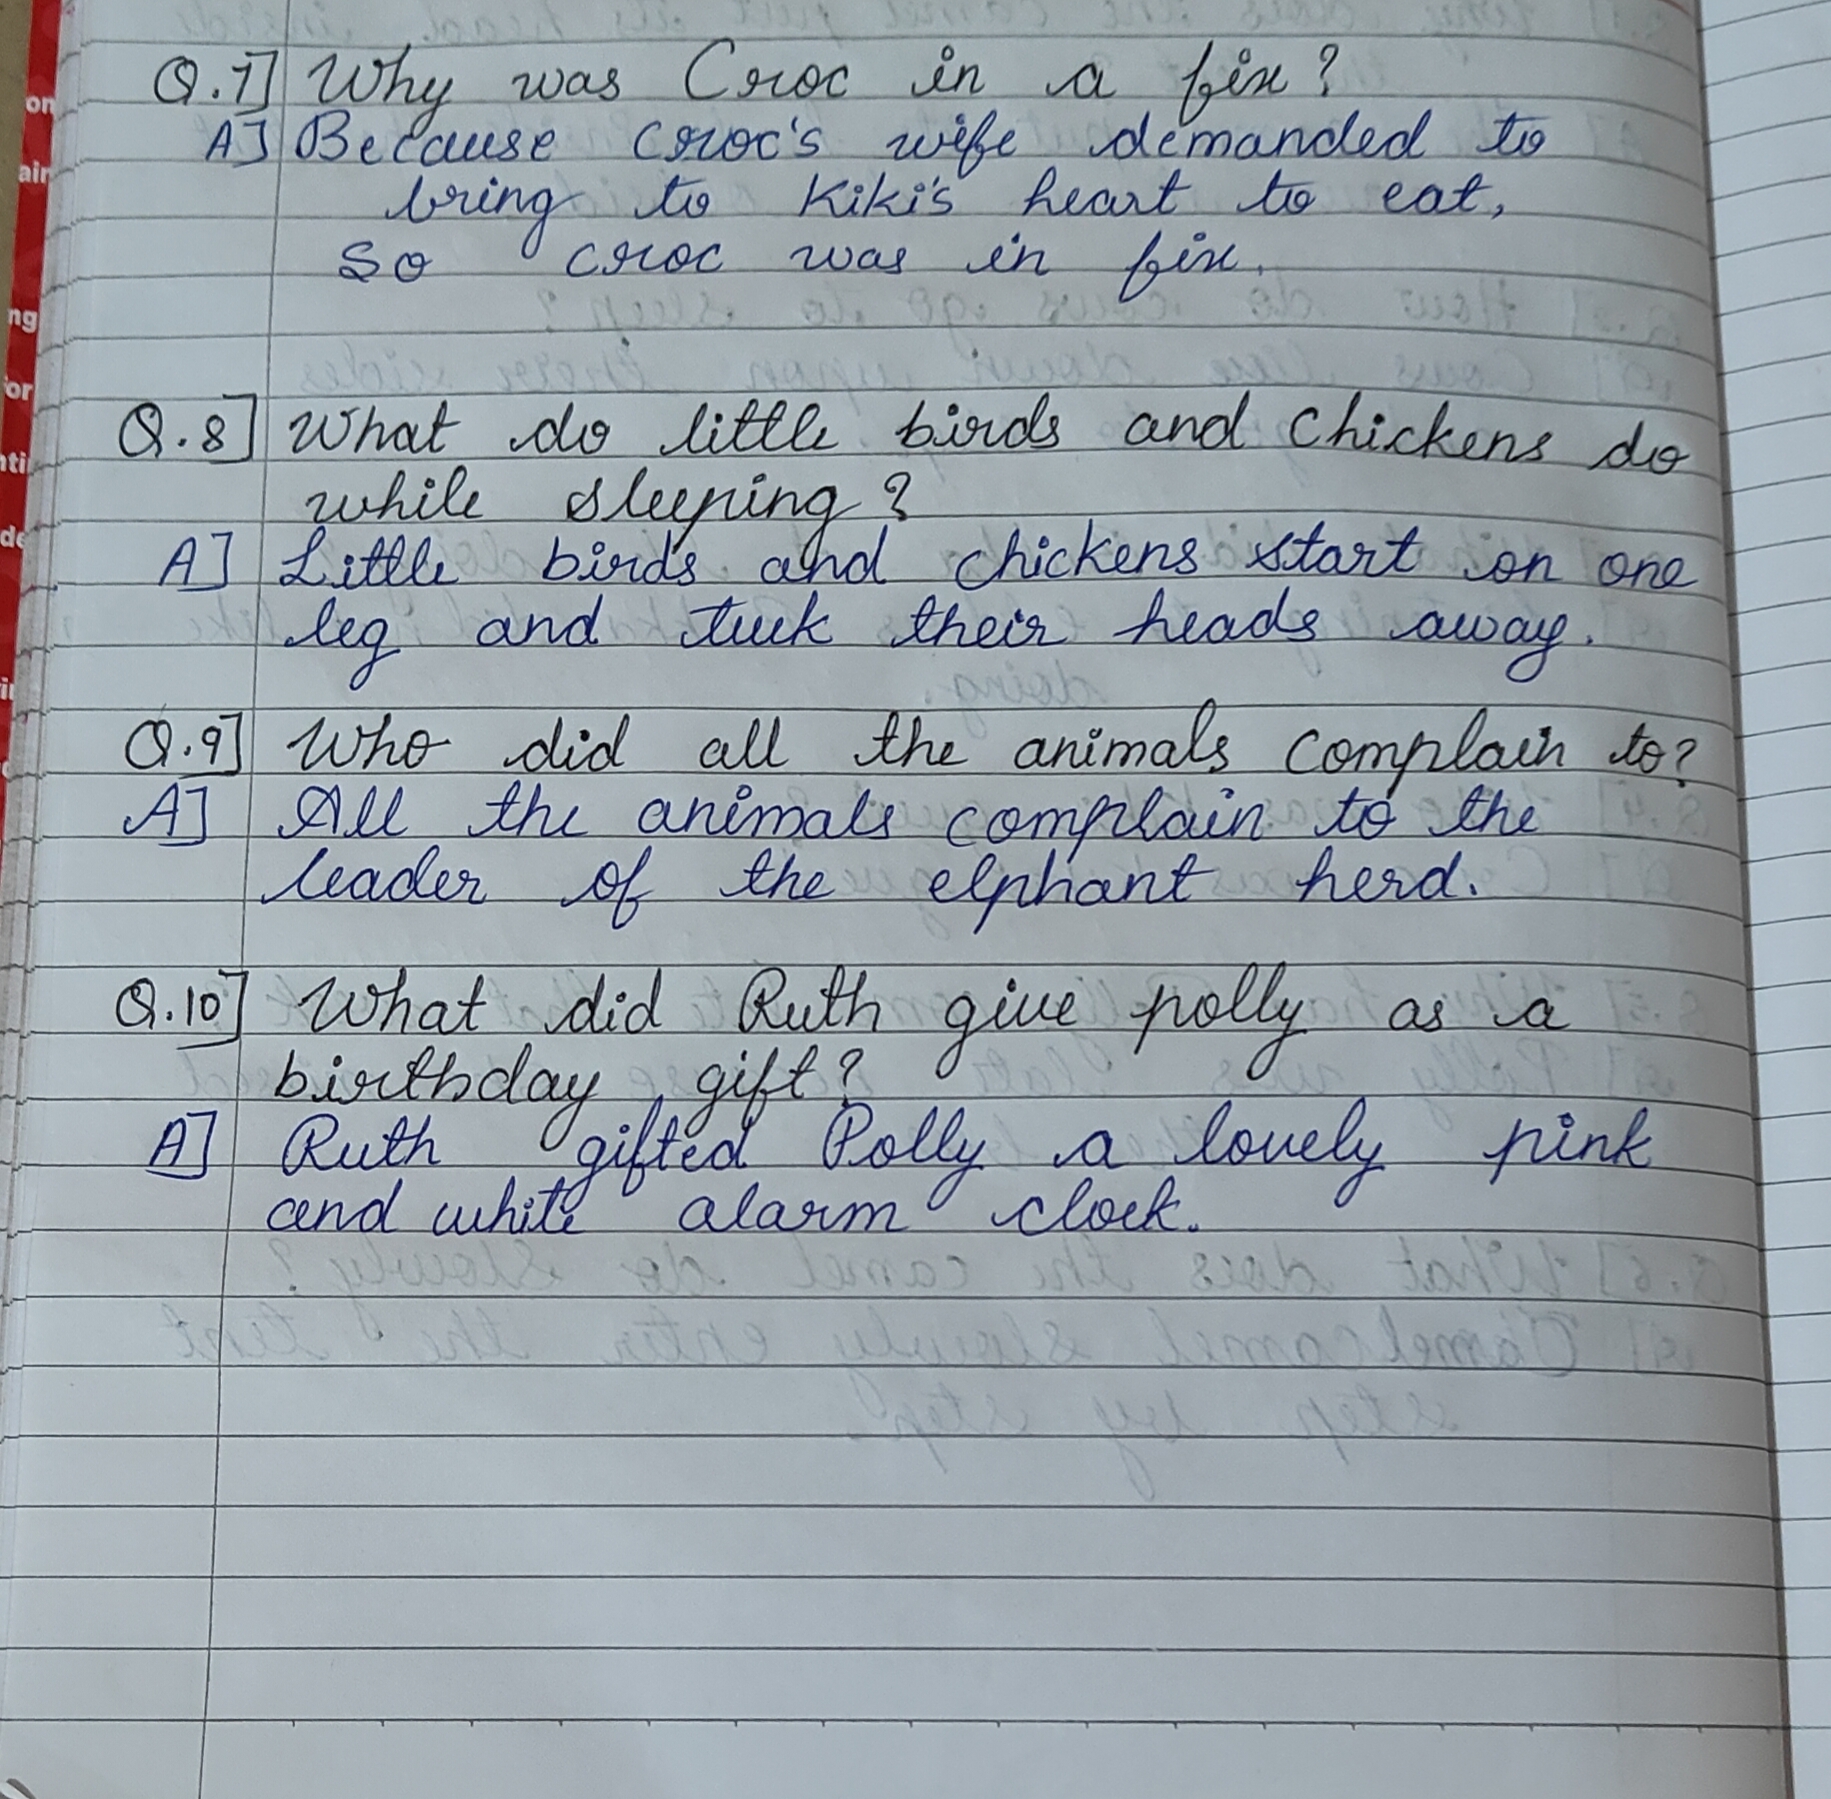 Q.7] Why was Croc in a fix?
A] Because croc's wife demanded to
bring to Kiki's heart to eat,
so croc was in fix.
Q.8] What do little birds and chickens do
while sleeping?
A] Little birds and chickens start on one
leg and tuck their heads away.
Q.9] Who did all the animals complain to?
A] All the animals complain to the
leader of the elphant herd.
Q.10] What did Ruth give polly as a
birthday gift?
A] Ruth gifted Polly a lovely pink
and white alarm clock.